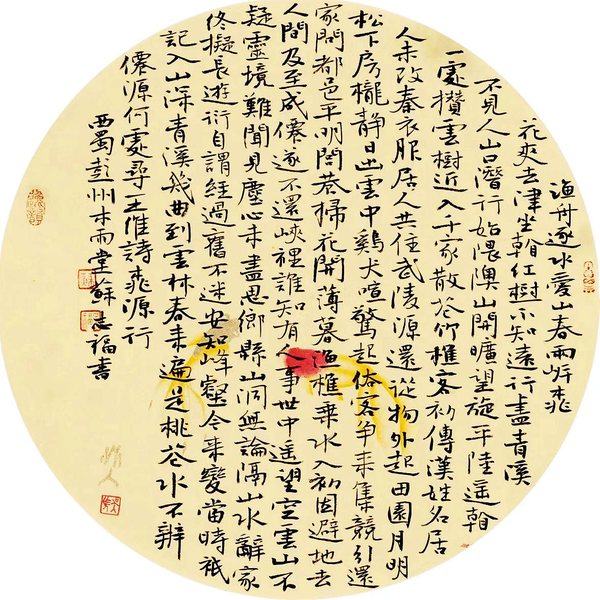 漁舟逐水愛山春兩岍桃
花夾去津坐翰紅樹不知遠行盡青溪
不見人山口潛行始隈隩山開曠望旋平陸遥翰
一處攢雲樹近入千家散花竹樵客初傳漢姓名居
人未改秦衣服居人共住武陵源還從物外起田園月明
松下房櫳静日出雲中鷄犬喧驚起俗客争来集競引還
家問都邑平明閭巷掃花開薄暮漁樵乘水入初因避地去
人間及至成僊遂不還峽裡誰知有人事世中遥望空雲山不
疑靈境難聞見塵心未盡思鄉縣出洞無論隔山水辭家
終擬長遊衍自謂經過舊不迷安知峰壑今来變當時衹
記入山深青溪幾曲到雲林春来遍是桃花水不辨
僊源何處尋王維詩桃源行
西蜀彭州木雨堂蘇志福書